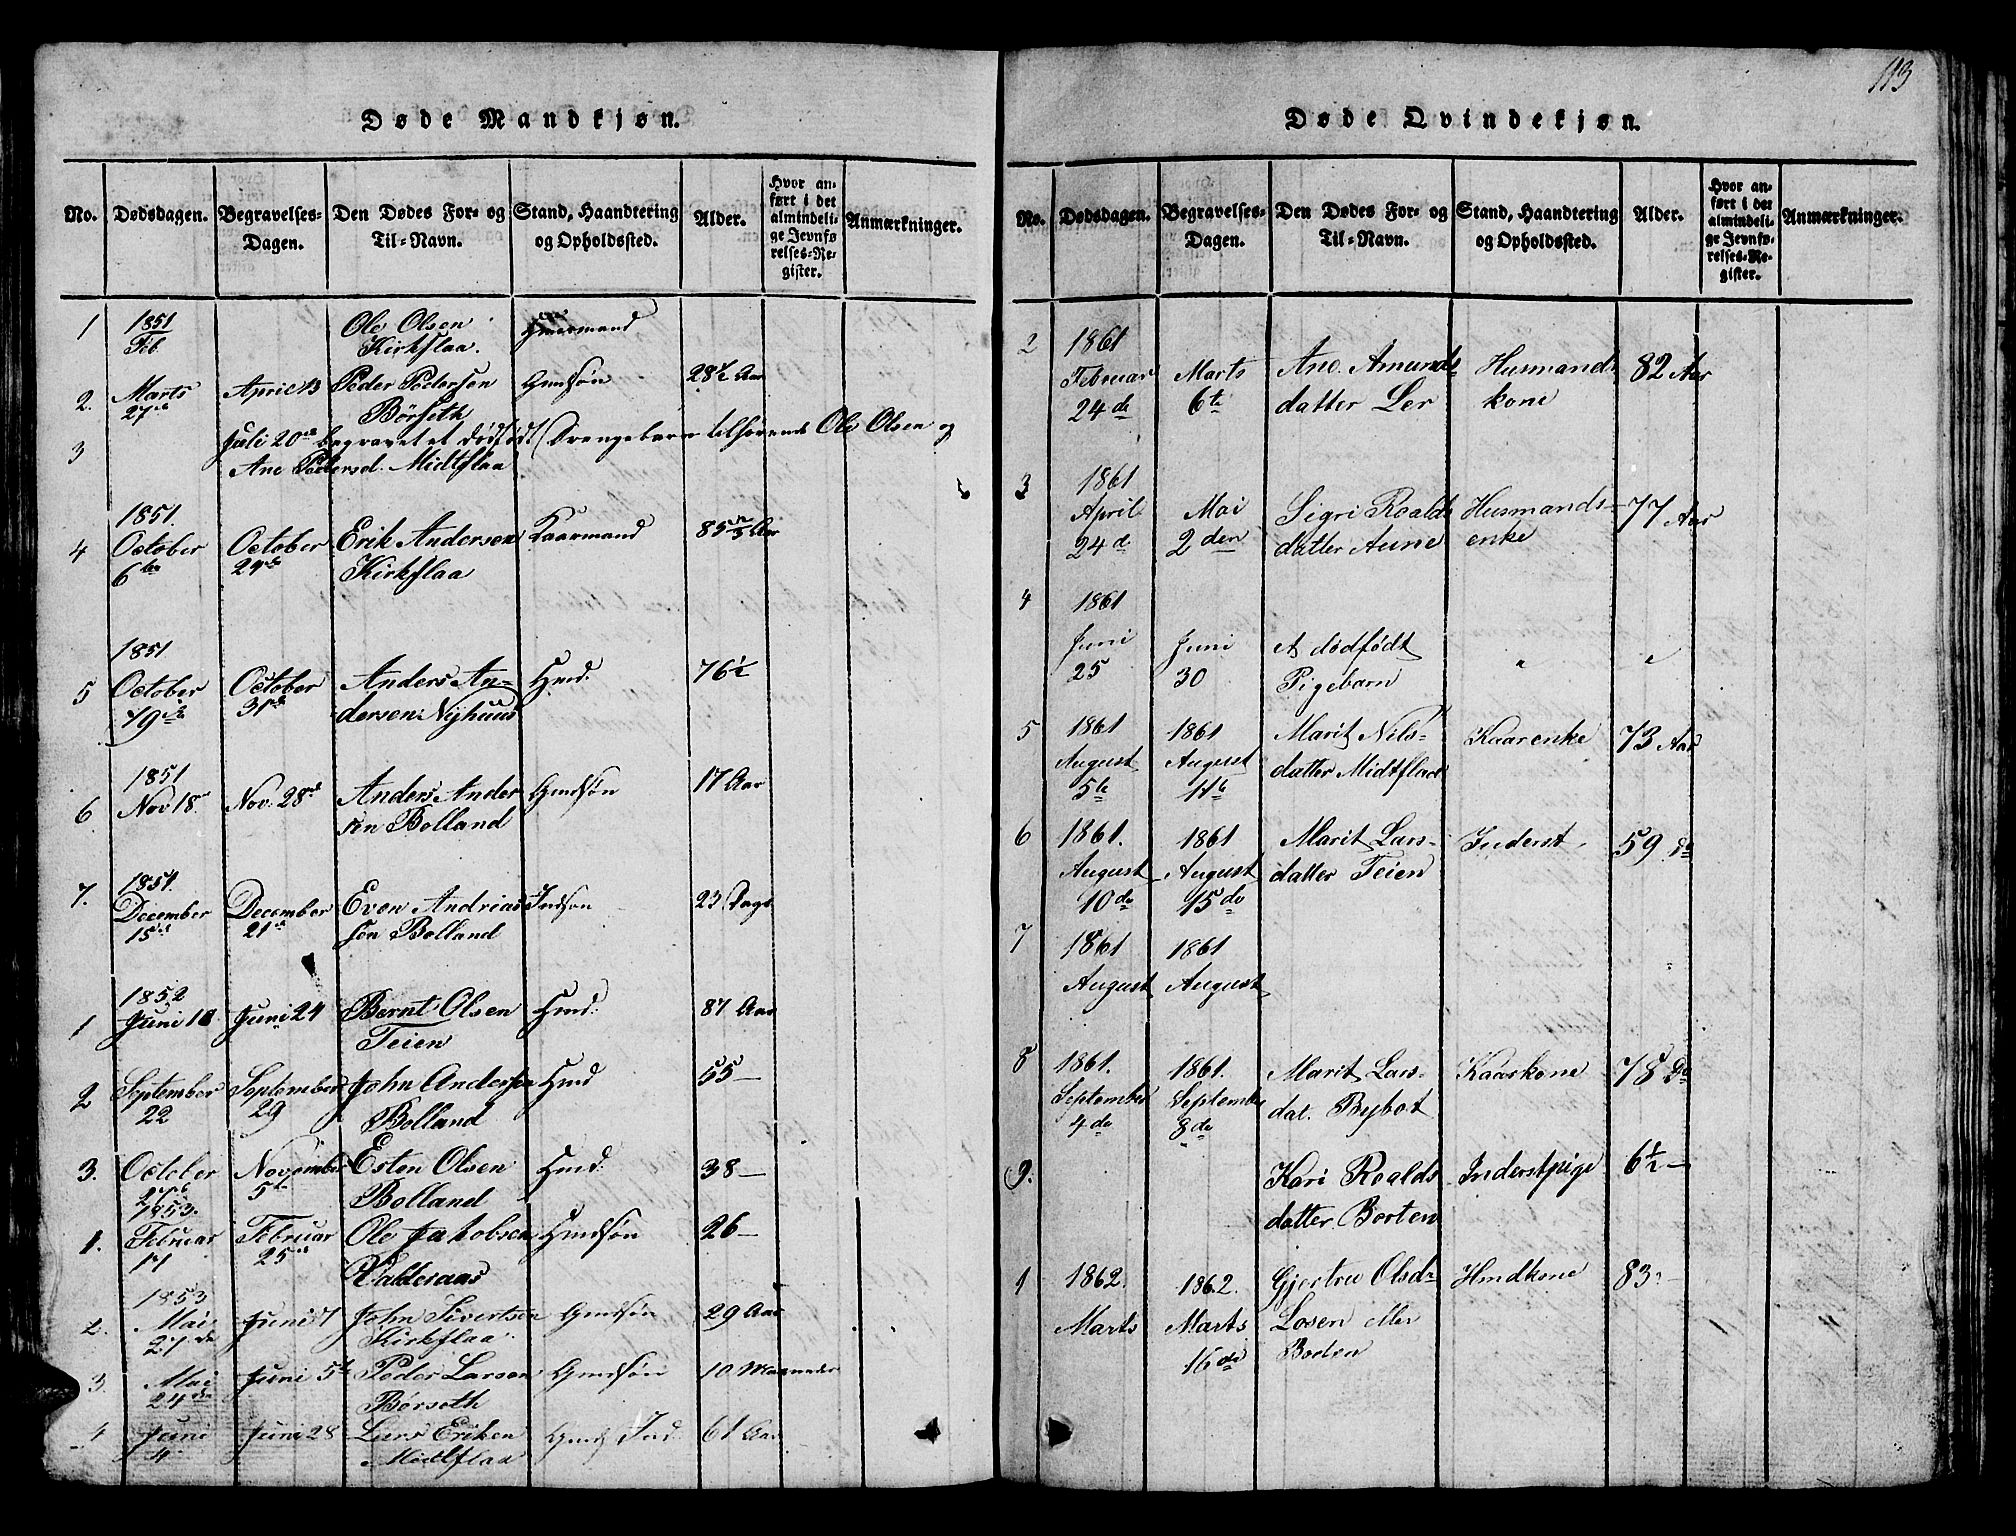 113
Døde Mandkjøn.
No. Dødsdagen. Begravelses-Dagen. Den Dødes For- og Til-Navn. Stand, Haandtering og Opholdssted. Alder. Hvor anført i det almindelige Jevnførelses-Register. Anmærkninger.
1 1851 Feb. Ole Olsen
Kirkflaa.
2. Marts 27de April 13 Peder Pedersen Gmdsøn 28½ Aar
Børseth
3 Juli 20de begravet et dødfødt Drengebarn tilhørende Ole Olsen og
Ane Pedersd. Midtflaa
1851.
4 October October Erik Andersen Kaarmand 85 Aar
6te 24de Kirkflaa
1851
5 October October Anders An- Hmd. 76½
19de 31de dersen Nyhuus
1851
6 Nov 18 Nov. 28de Anders Ander Gmdsøn 17 Aar
sen Bolland
1851.
7. December December Even Andrias Indsøn 23 Dage
15de 21de sen Bolland
1852
1 Juni 10 Juni 24 Bernt Olsen Hmd. 87 Aar
Teien
2 September September John Andersen Hmd 55 —
22 29 Bolland
3. October November Esten Olsen Hmd. 38 —
27de 5te Bolland
1853.
1. Februar Februar Ole Jakobsen Hmdsøn 26 —
17 25de Valderaas
1853
2. Mai Juni 7 John Sivertsen Gmdsøn 29 Aar
27de Kirkflaa
3. Mai Juni 5te Peder Larsen Gmdsøn 10 Maaneder
24de Børseth
4 Juni Juni 28 Lars Eriksen Ind. 61 Aar
4 Midtflaa
Døde Qvindekjøn.
No. Dødsdagen. Begravelses-Dagen. Den Dødes For- og Til-Navn. Stand, Haandtering og Opholdssted. Alder. Hvor anført i det almindelige Jevnførelses-Register. Anmærkninger.
2 1861
Februar Marts Ane Amunds Husmands 82 Aar
24de 6te datter Ler kone
3 1861
April Mai Sigri Roalds Husmands- 77 Aar
24de 2den datter Aune enke
4 1861
Juni Juni Et dødfødt " "
25 30 Pigebarn
5 1861 1861 Marit Nils- Kaarenke 73 Aar
August August datter Midtflaae
5te 11te
6 1861. 1861 Marit Lars- Inderst 59 do
August August datter Teien
10de 15de
7 1861 1861
August August
8 1861. 1861. Marit Lars- Kaarkone 78 do
September September dat. Bybot
4de 8de
9. Kari Roalds Inderstpige 6½ —
datter Borten
1 1862. 1862. Gjertru Olsd- Hmdkone 83 —
Marts Marts Losen eller
16de Borten